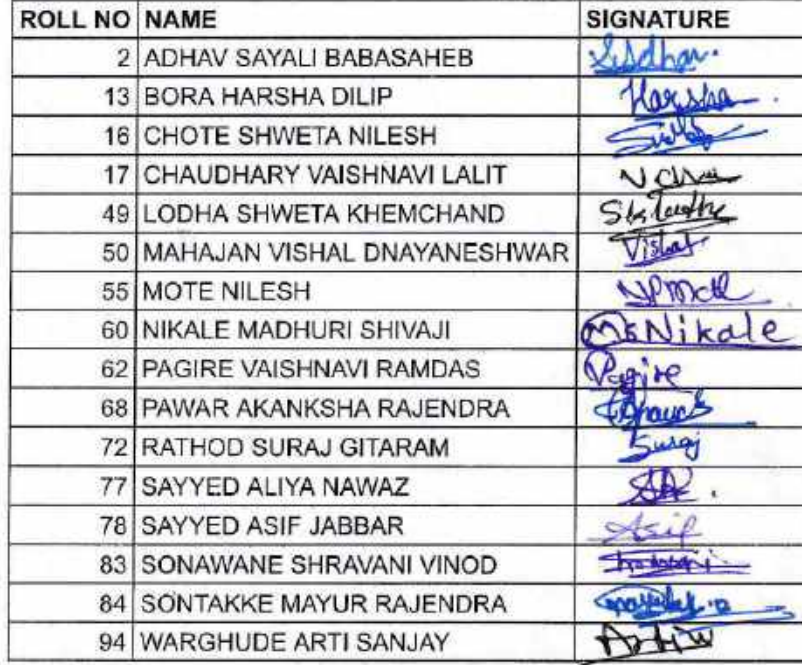 ROLL NO NAME SIGNATURE
2 ADHAV SAYALI BABASAHEB
13 BORA HARSHA DILIP Harsha
16 CHOTE SHWETA NILESH
17 CHAUDHARY VAISHNAVI LALIT
49 LODHA SHWETA KHEMCHAND
50 MAHAJAN VISHAL DNAYANESHWAR Vishal
55 MOTE NILESH
60 NIKALE MADHURI SHIVAJI MSNikale
62 PAGIRE VAISHNAVI RAMDAS Pagire
68 PAWAR AKANKSHA RAJENDRA
72 RATHOD SURAJ GITARAM Suraj
77 SAYYED ALIYA NAWAZ
78 SAYYED ASIF JABBAR Asif
83 SONAWANE SHRAVANI VINOD
84 SONTAKKE MAYUR RAJENDRA
94 WARGHUDE ARTI SANJAY